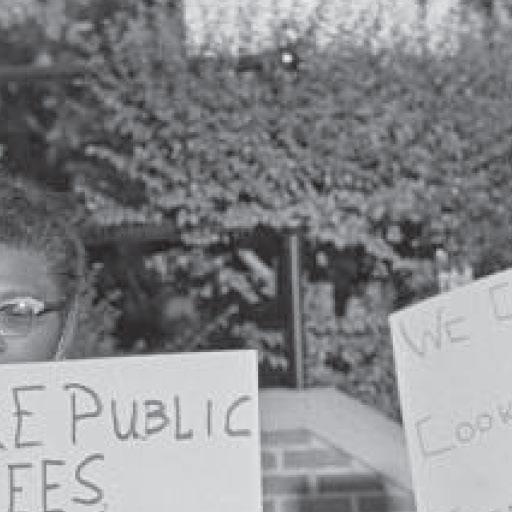 RE PUBLIC
EES
WE
COOK